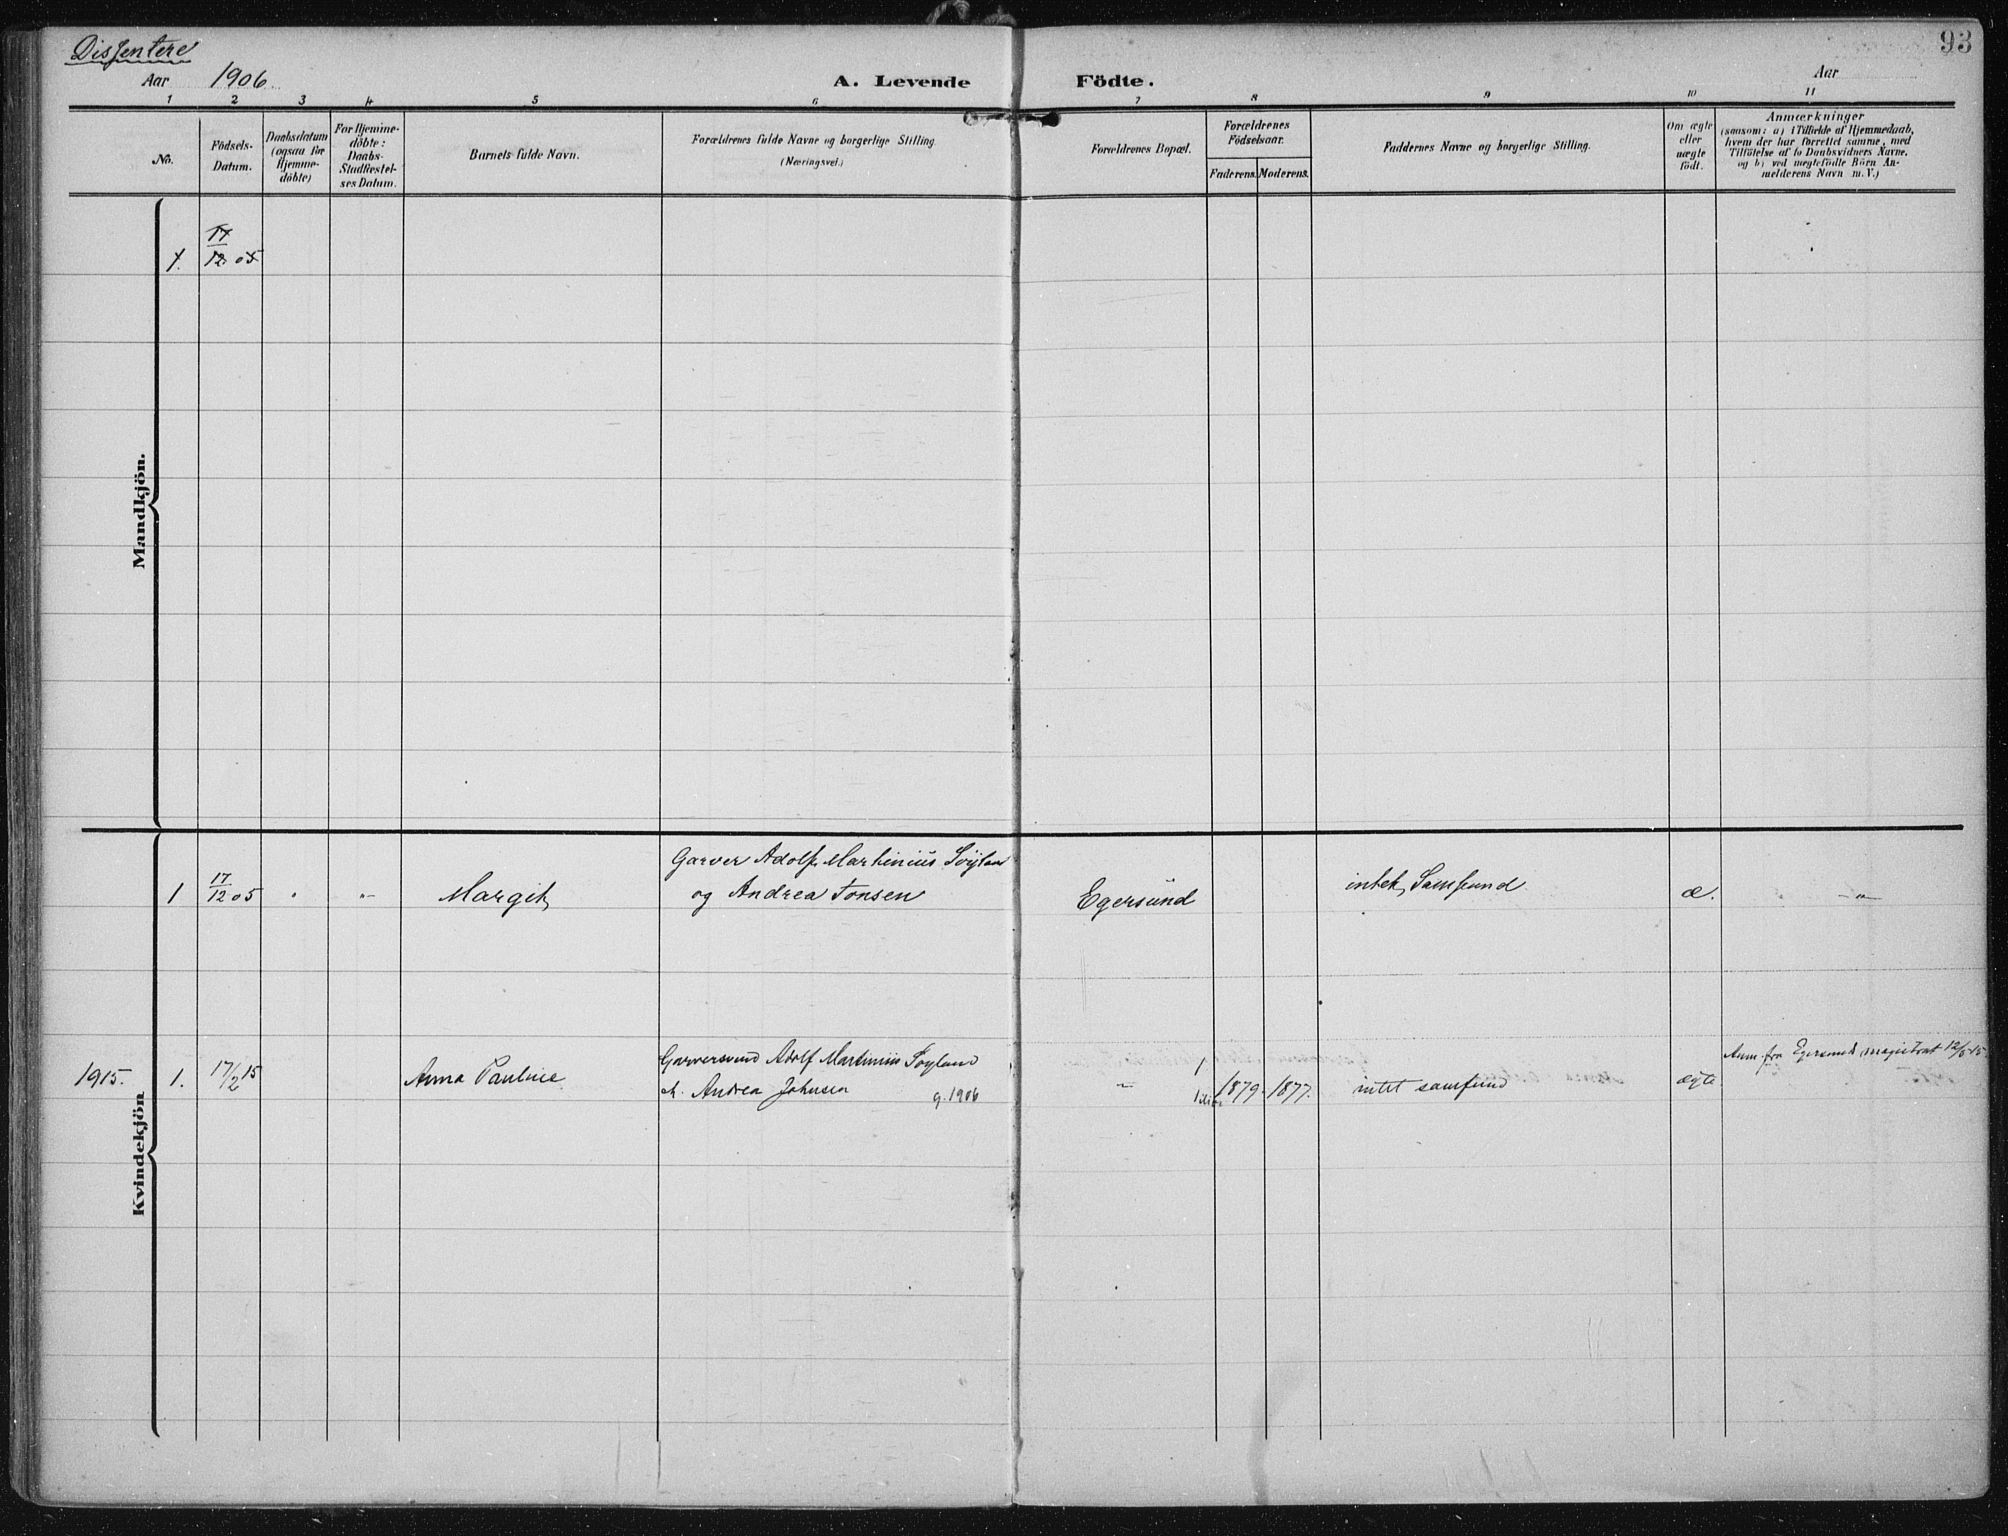 Dissentere
93
Aar 1906
A. Levende Födte.
Aar
1 2 3 4 5 6 7 8 9 10 11
No.
Födsels-
Datum.
Daabsdatum
(ogsaa for
Hjemme-
döbte)
For Hjemme-
döbte:
Daabs-
Stadfæstel-
ses Datum.
Barnets fulde Navn.
Forældrenes fulde Navne og borgerlige Stilling
(Næringsvei.)
Forældrenes Bopæl.
Forældrenes
Födselsaar.
Faderens. Moderens.
Faddernes Navne og borgerlige Stilling.
Om ægte
eller
uægte
födt.
Anmærkninger
(saasom: a) i Tilfælde af Hjemmedaab,
hvem der har forrettet samme, med
Tilföielse af to Daabsvidners Navne.
og b) ved uegtefödte Börn An-
melderens Navn m. V.)
Mandkjön.
1. 17
12 05
Kvindekjön
Garver Adolf Martinius Söyland
1 17/12 05 " -"- Margit og Andrea Tonsen Egersund intet Samfund æ. -"-
Garversvend Adolf Martinius Søyland
Anm. fra Egersunds magistrat 12/3 15
1915. 1. 17/2 15 Anna Pauline Andrea Johnsen g. 1906 -"- 1879. 1877. intet samfund ægte